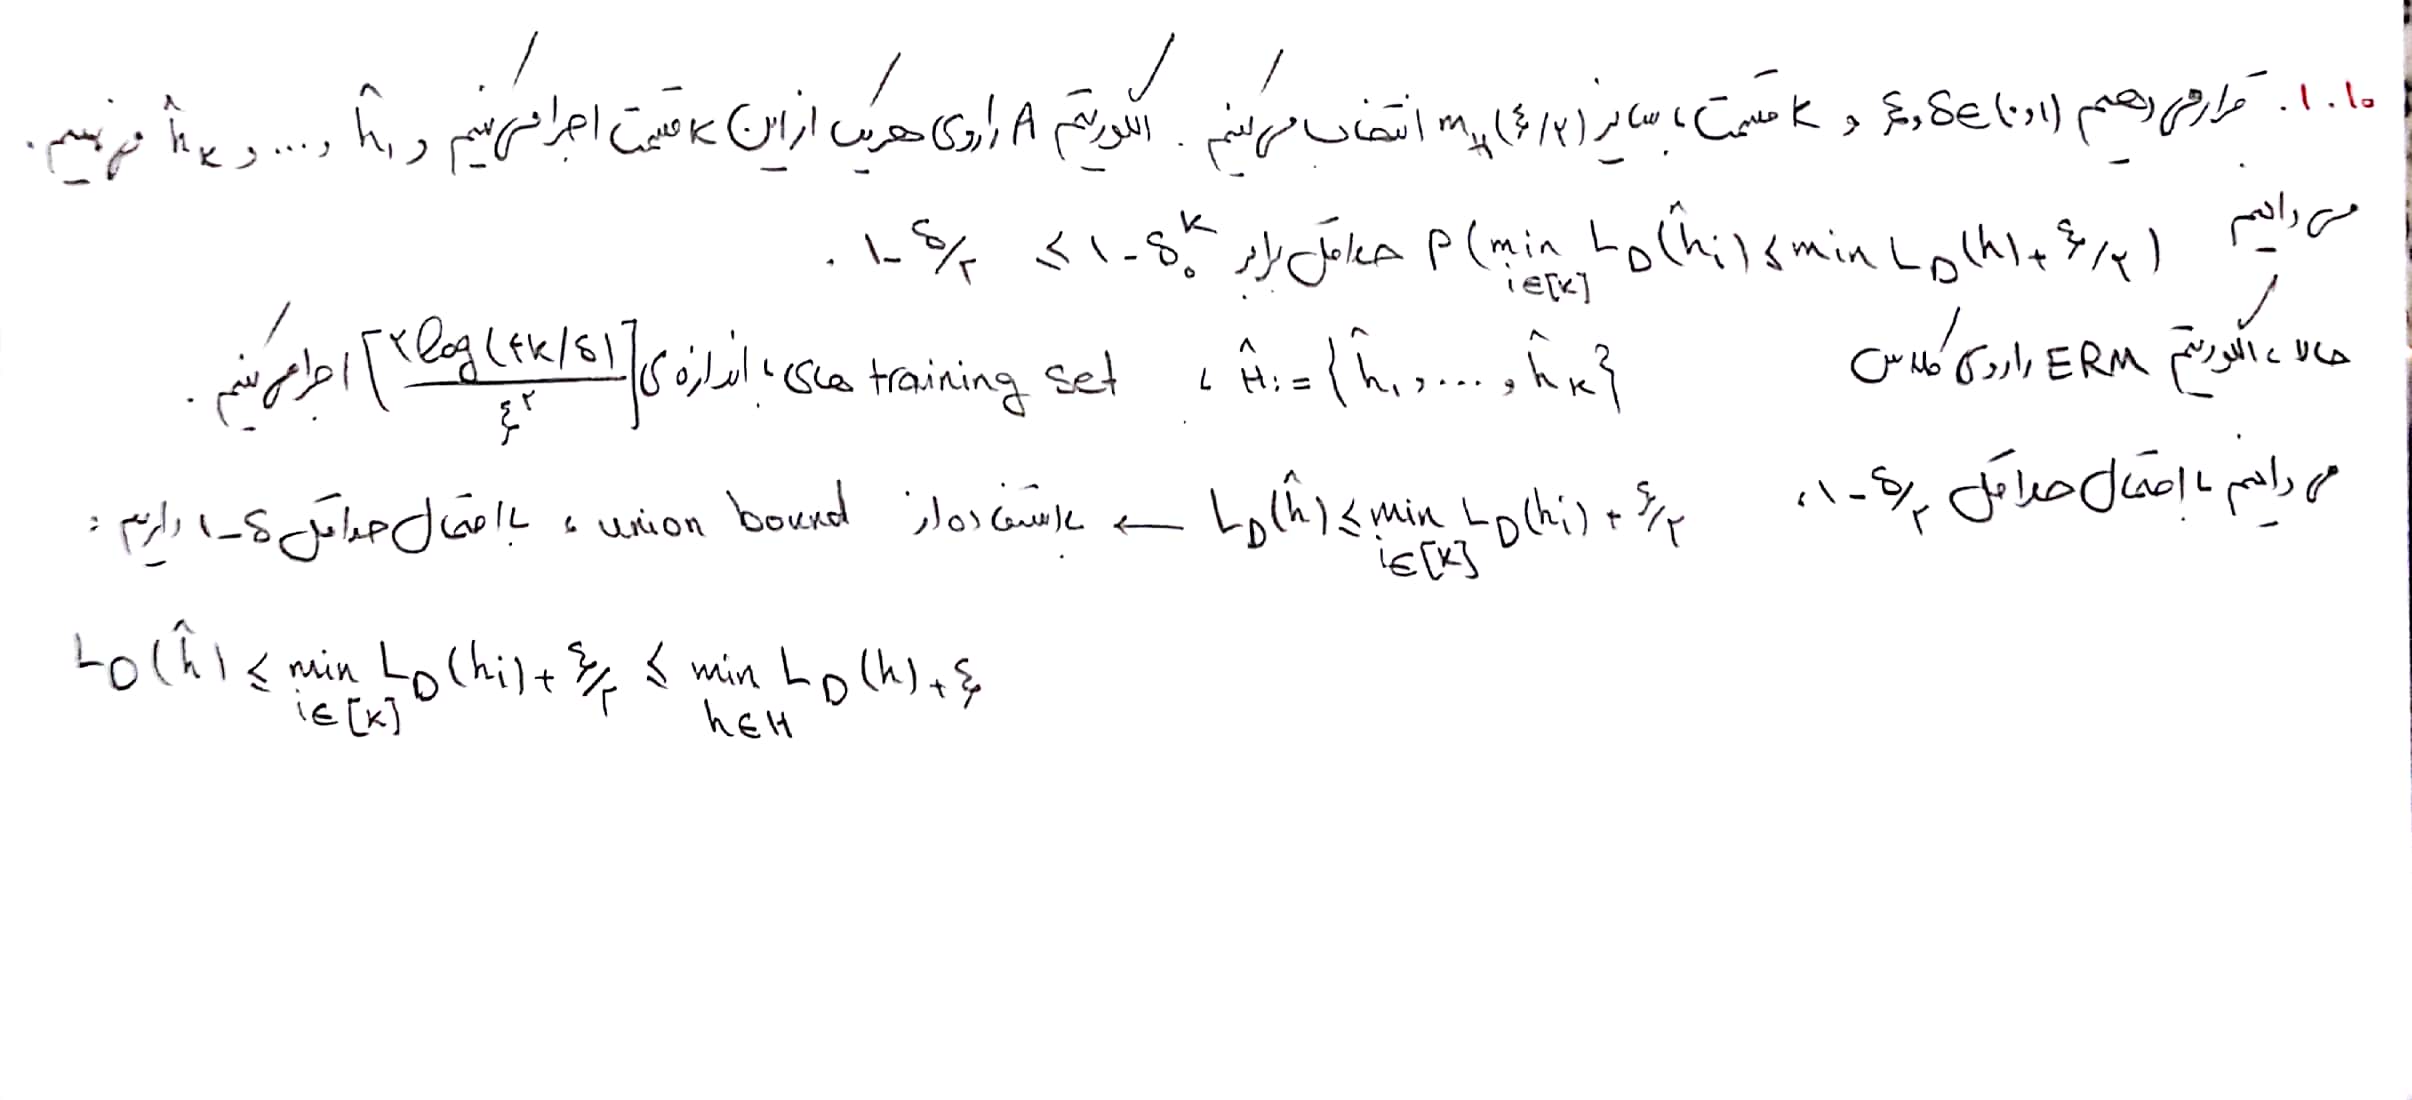 ۱.۱۰. قرار می دهیم ε,δ∈(۰,۱) و k قسمت با سایز m_H(ε/۲) انتخاب می کنیم. الگوریتم A را روی هر یک از این k قسمت اجرا می کنیم و ĥ₁ و ... و ĥ_k می نامیم.
می دانیم P(min_{i∈[k]} L_D(ĥ_i) ≤ min L_D(h) + ε/۲) حداقل برابر ۱-δ₀^k ≥ ۱-δ/۲.
حالا، الگوریتم ERM را روی کلاس Ĥ := {ĥ₁, ..., ĥ_k} با training set های با اندازه ی ⌈۲log(۴k/δ)/ε^۲⌉ اجرا می کنیم.
می دانیم با احتمال حداقل ۱-δ/۲، L_D(ĥ) ≤ min_{i∈[k]} L_D(h_i) + ε/۲ ← با استفاده از union bound، با احتمال حداقل ۱-δ داریم:
L_D(ĥ) ≤ min_{i∈[k]} L_D(h_i) + ε/۲ ≤ min_{h∈H} L_D(h) + ε